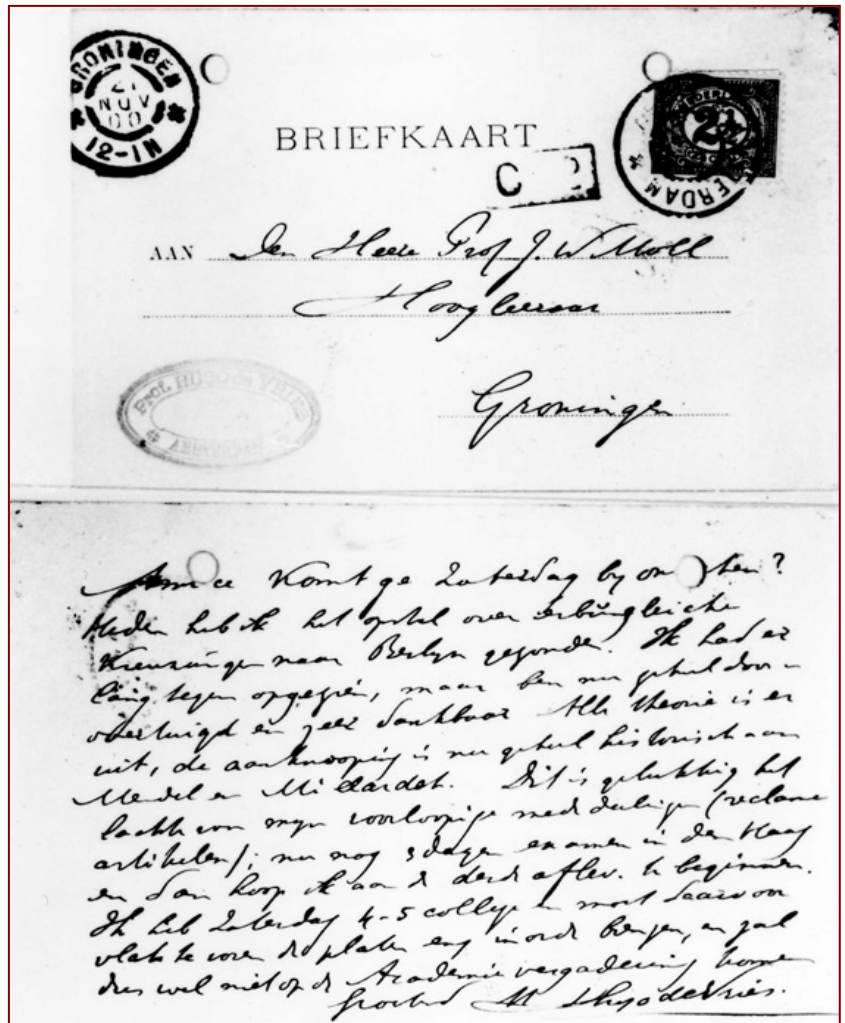 GRONINGEN
21
NOV
00
12-1N
BRIEFKAART
2½
AMSTERDAM
C
AAN Den Heere Prof J. W Moll
Hoogleeraar
Groningen
Prof. HUGO de VRIES
AMSTERDAM
Amice Komt ge Zaterdag by ons eten?
Heden heb ik het opstel over erbungleiche
Kreuzungen naar Berlyn gezonden. Ik had er
lang tegen opgezien, maar ben nu geheel door
overtuigd en zeer dankbaar Alle theorie is er
uit, de aanknooping is nu geheel historisch aan
Mendel en Millardet. Dit is gelukkig het
laatste van myn voorloopige mededeelingen (reclame
artikelen); nu nog 3 dagen examen in den Haag
en dan hoop ik aan de derde aflev. te beginnen.
Ik heb Zaterdag 4-5 college en moet daarvoor
vlak te voren de platen enz in orde brengen, en zal
dus wel niet op de Academie vergadering komen
Groetend Hugo de Vries.